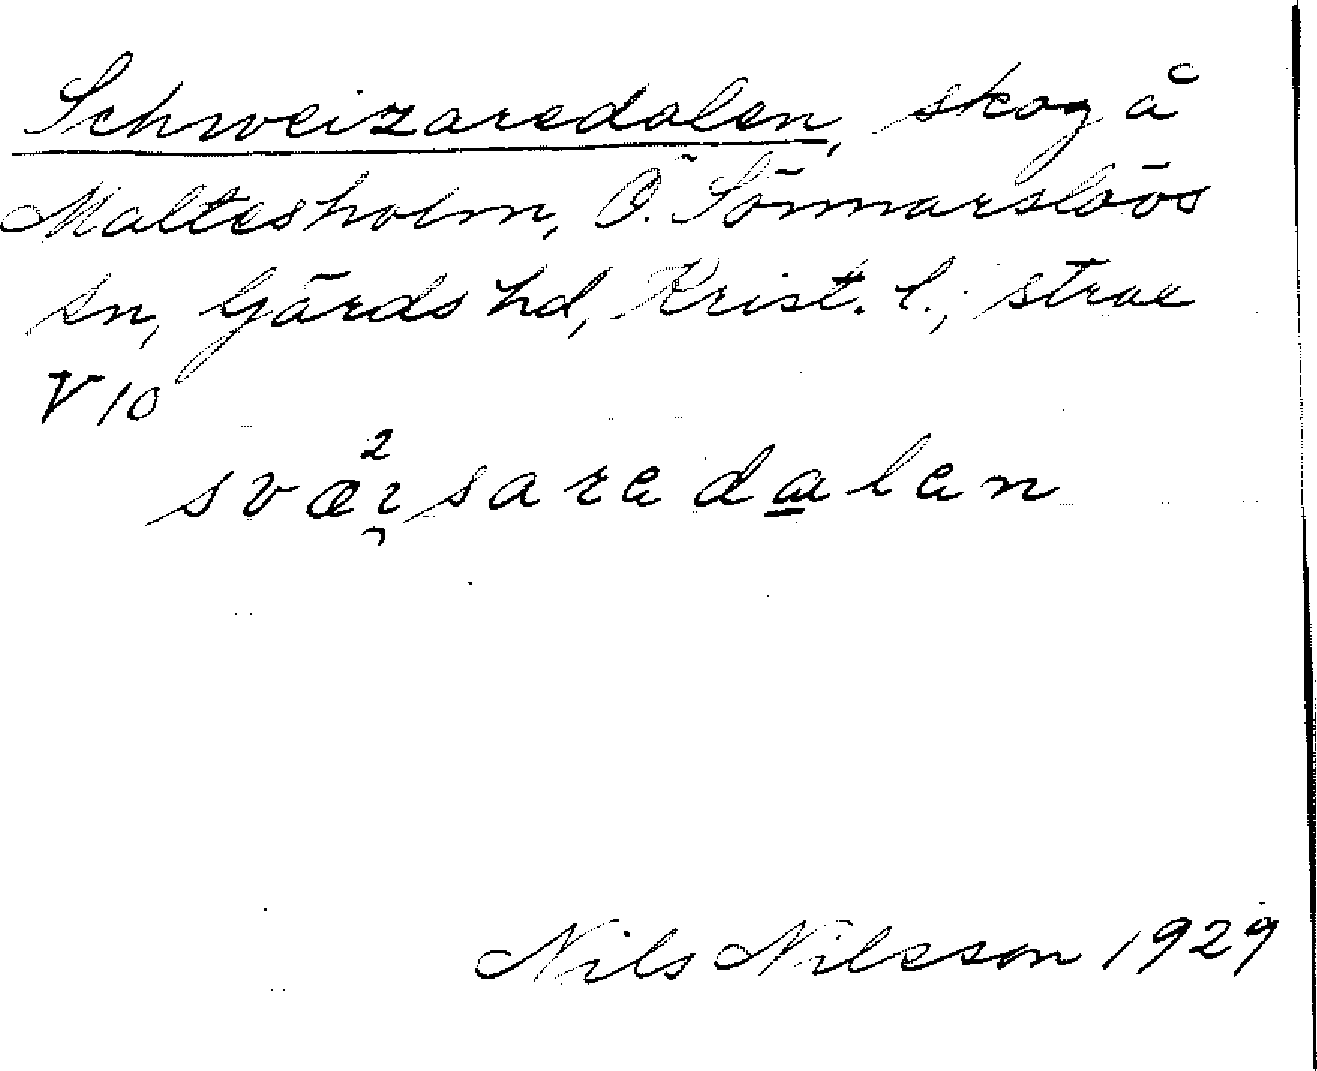 Schweizaredalen, skog å
Maltesholm, Ö. Sönnarslövs
sn, Gärds hd, Krist. l.; strax
V 10
svæ²i̯saredalen
Nils Nilsson 1929